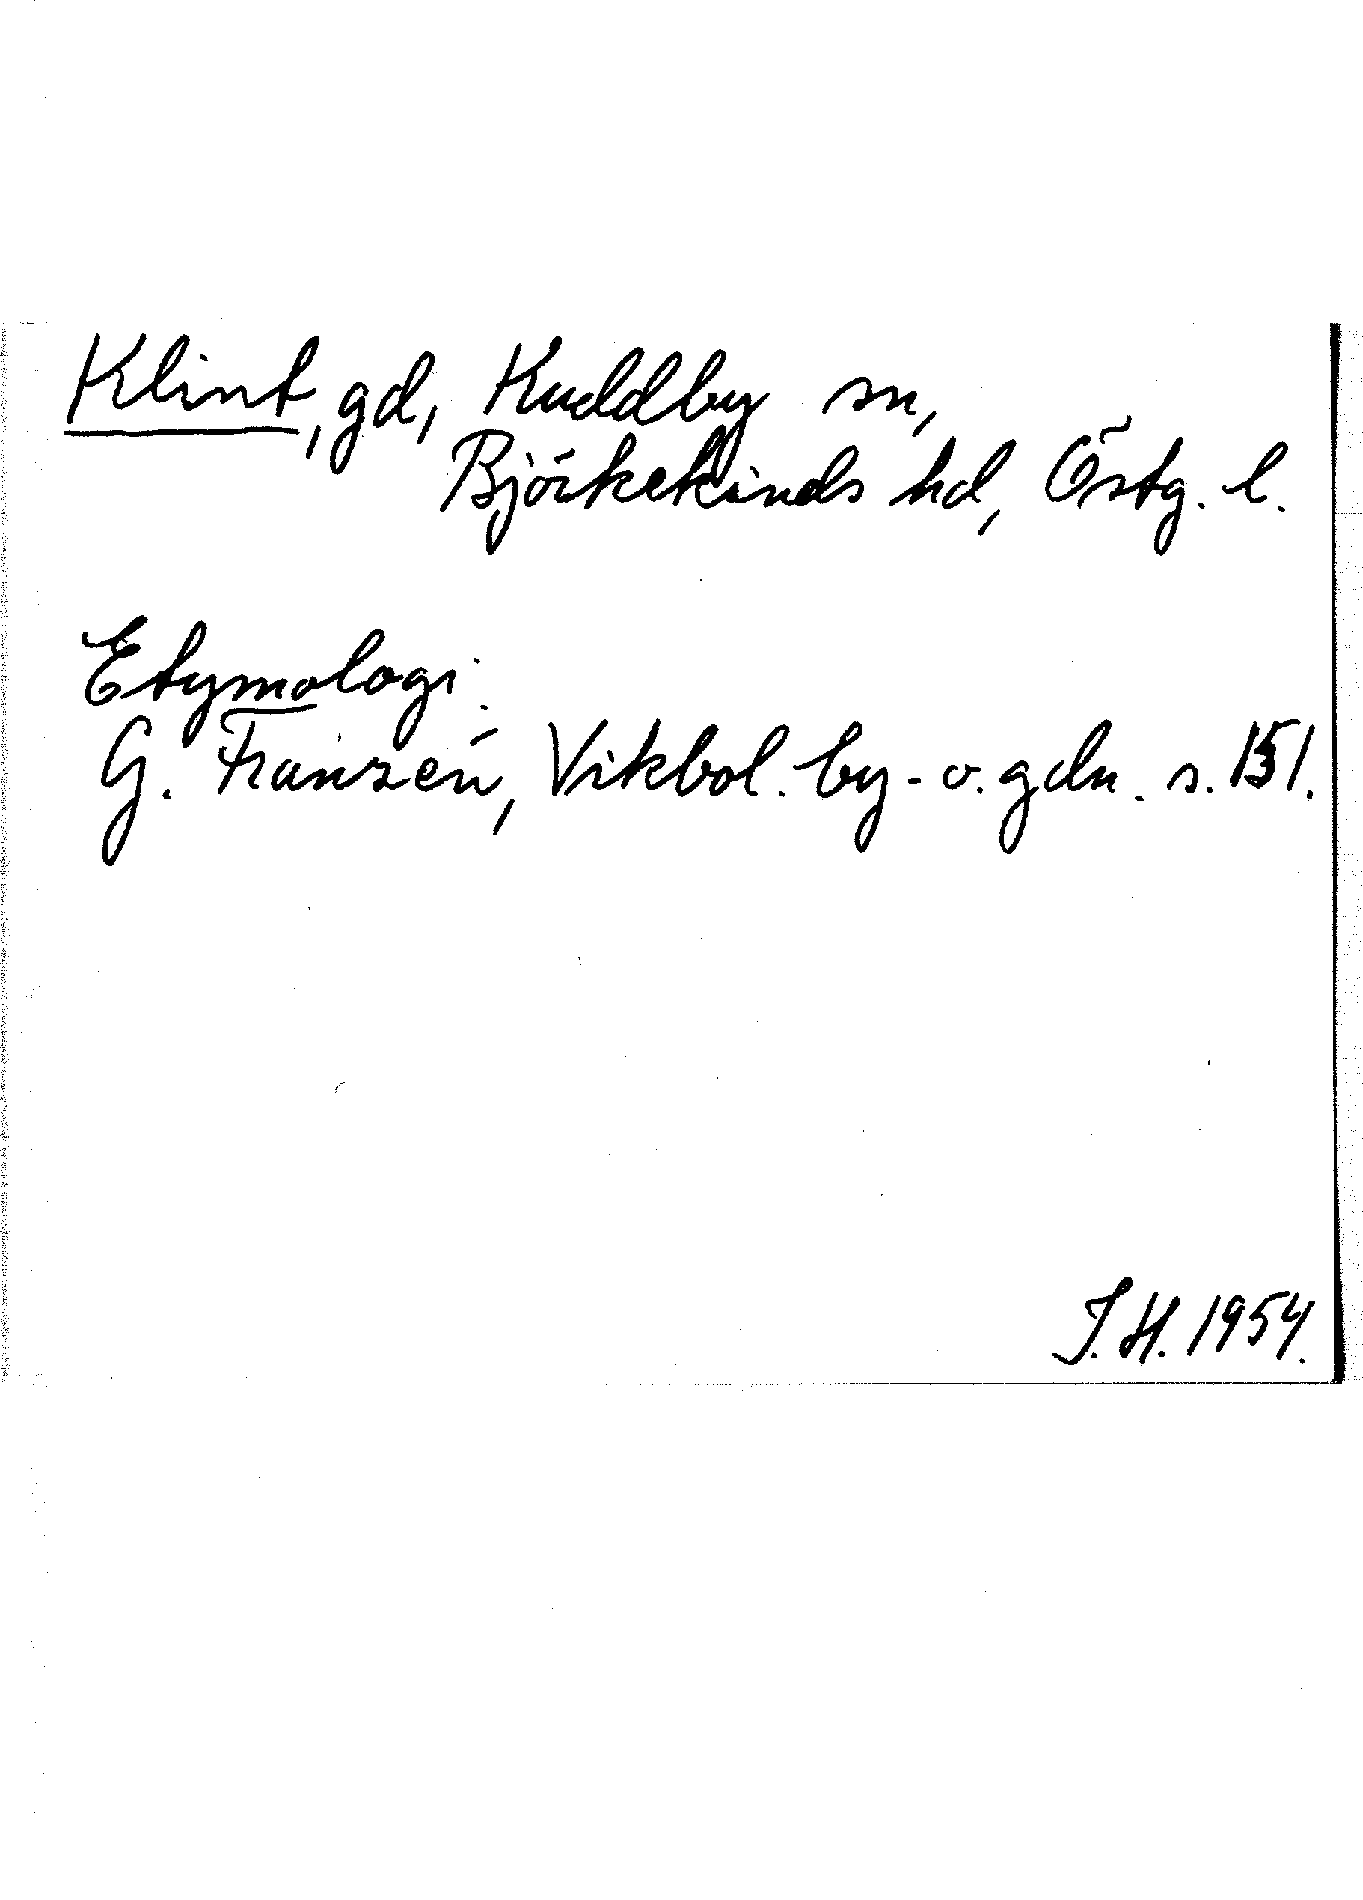 Klint, gd, Kuddby sn,
Björkekinds hd, Östg. l.
Etymologi:
G. Franzén, Vikbol. by- o. gdn. s. 151.
J.H. 1954.